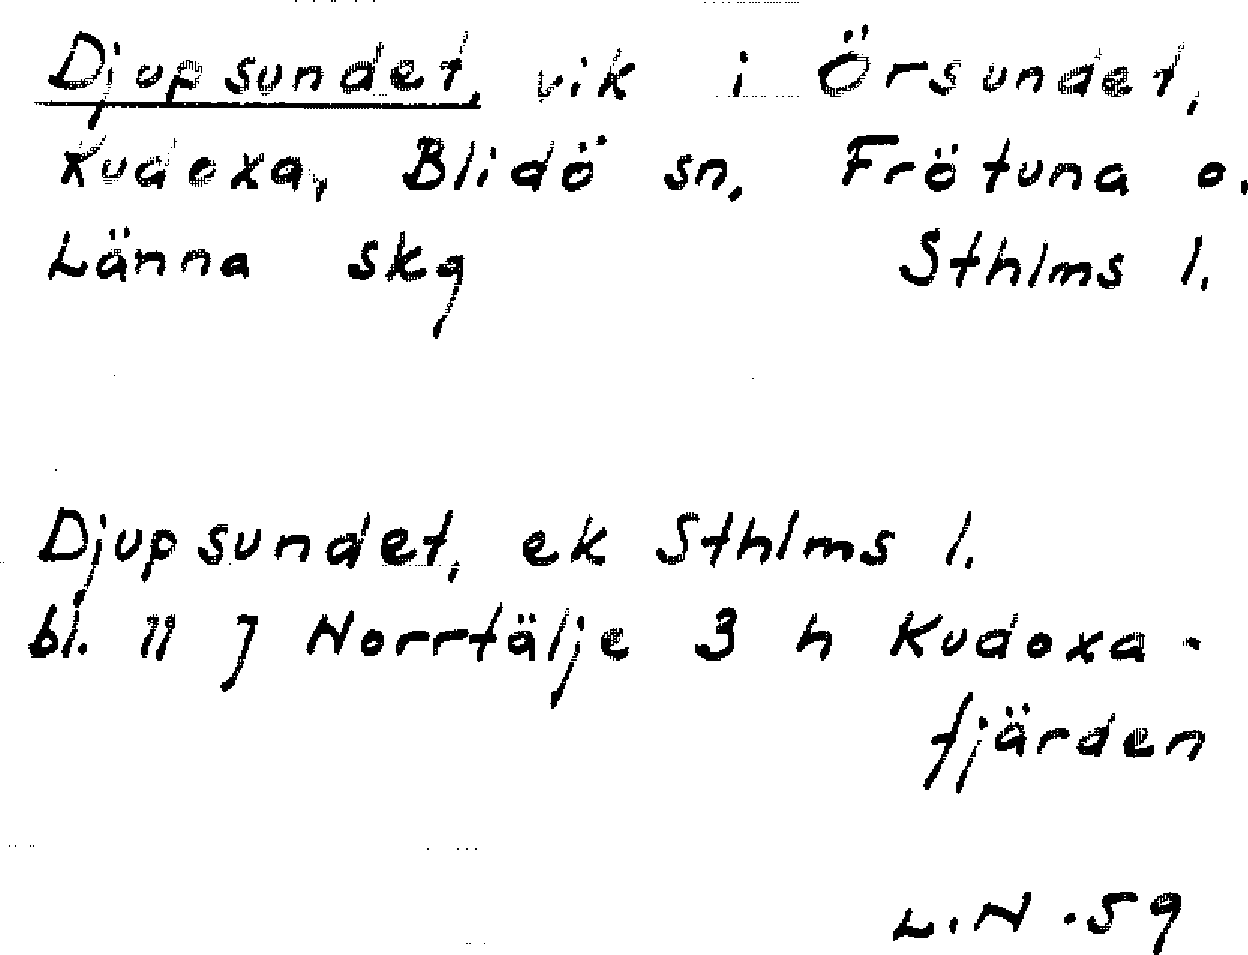 Djupsundet, vik i Örsundet,
Kudoxa, Blidö sn, Frötuna o.
Länna skg Sthlms l.
Djupsundet, ek Sthlms l.
bl. 11 J Norrtälje 3 h Kudoxa-
fjärden
L.N. 59